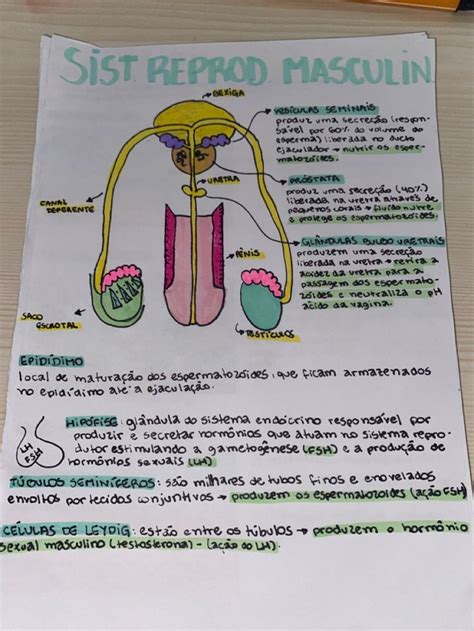 SIST REPROD MASCULIN
BEXIGA
VESÍCULAS SEMINAIS
produz uma secreção (respon-
sável por 60% do volume do
esperma) liberada no ducto
ejaculador → nutrir os esper-
matozoides.
PRÓSTATA
produz uma secreção (40%)
liberada na uretra através de
pequenos canais → fluido nutre
e protege os espermatozoides.
URETRA
CANAL
DEFERENTE
GLÂNDULAS BULBO URETRAIS
produzem uma secreção
liberada na uretra → retira a
acidez da uretra para a
passagem dos espermato-
zoides e neutraliza o pH
ácido da vagina.
PÊNIS
SACO
ESCROTAL
TESTÍCULOS
EPIDÍDIMO
local de maturação dos espermatozoides, que ficam armazenados
no epidídimo até a ejaculação.
HIPÓFISE: glândula do sistema endócrino responsável por
produzir e secretar hormônios que atuam no sistema repro-
dutor estimulando a gametogênese (FSH) e a produção de
hormônios sexuais (LH)
LH
FSH
TÚBULOS SEMINÍFEROS: são milhares de tubos finos e enovelados
envoltos por tecidos conjuntivos → produzem os espermatozoides (ação FSH)
CÉLULAS DE LEYDIG: estão entre os túbulos → produzem o hormônio
sexual masculino (testosterona) - (ação do LH).